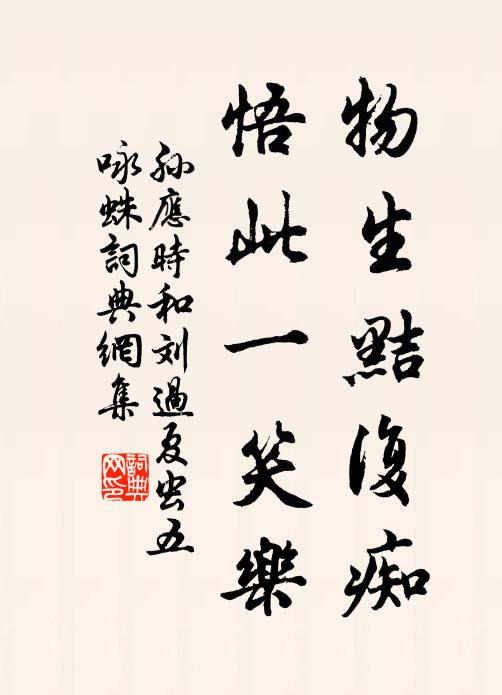 物生黠復痴
悟此一笑樂
孫應時和刘過夏虫五
咏蛛詞典網集
詞典
网印